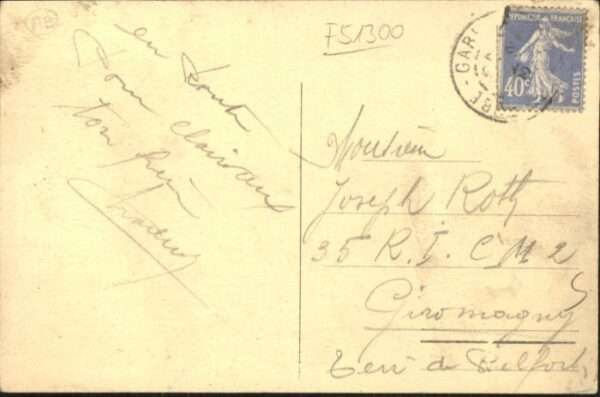 AB
F51300
en route
pour Clairvaux
ton frère
GARE
RÉPUBLIQUE FRANÇAISE
40c
POSTES
Monsieur
Joseph Roth
35 R. I. C M 2
Giromagny
Terr de Belfort